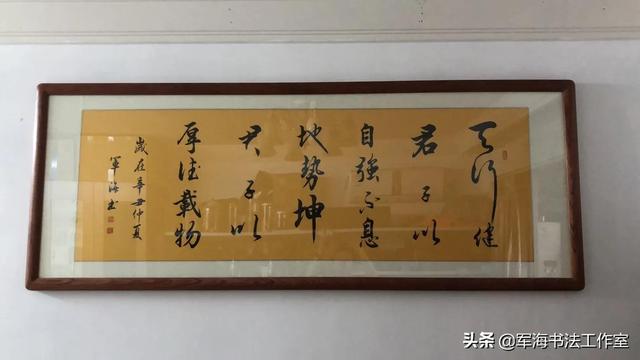 天行健
君子以
自強不息
地勢坤
君子以
厚德載物
歲在辛丑仲夏
軍海書
头条 @军海书法工作室